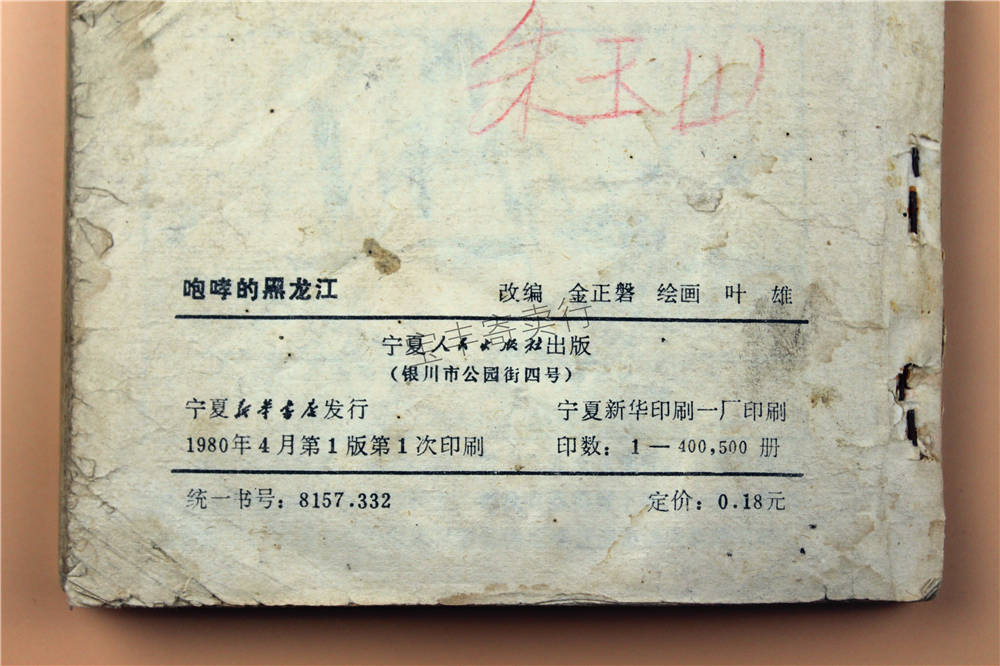 朱玉山
咆哮的黑龙江 改编 金正磐 绘画 叶 雄
宁夏人民出版社出版
(银川市公园街四号)
宁夏新华书店发行 宁夏新华印刷一厂印刷
1980年4月第1版第1次印刷 印数：1—400,500 册
统一书号：8157.332 定价：0.18元
宝丰寄卖行